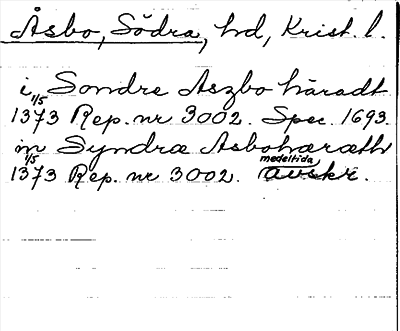 Åsbo, Södra, hd, Krist. l.
i Sondre Aszbo häradt
1/5
1373 Rep. nr 3002. Spec. 1693.
in Syndræ Asbohæræth
1/5 medeltida
1373 Rep. nr 3002. avskr.